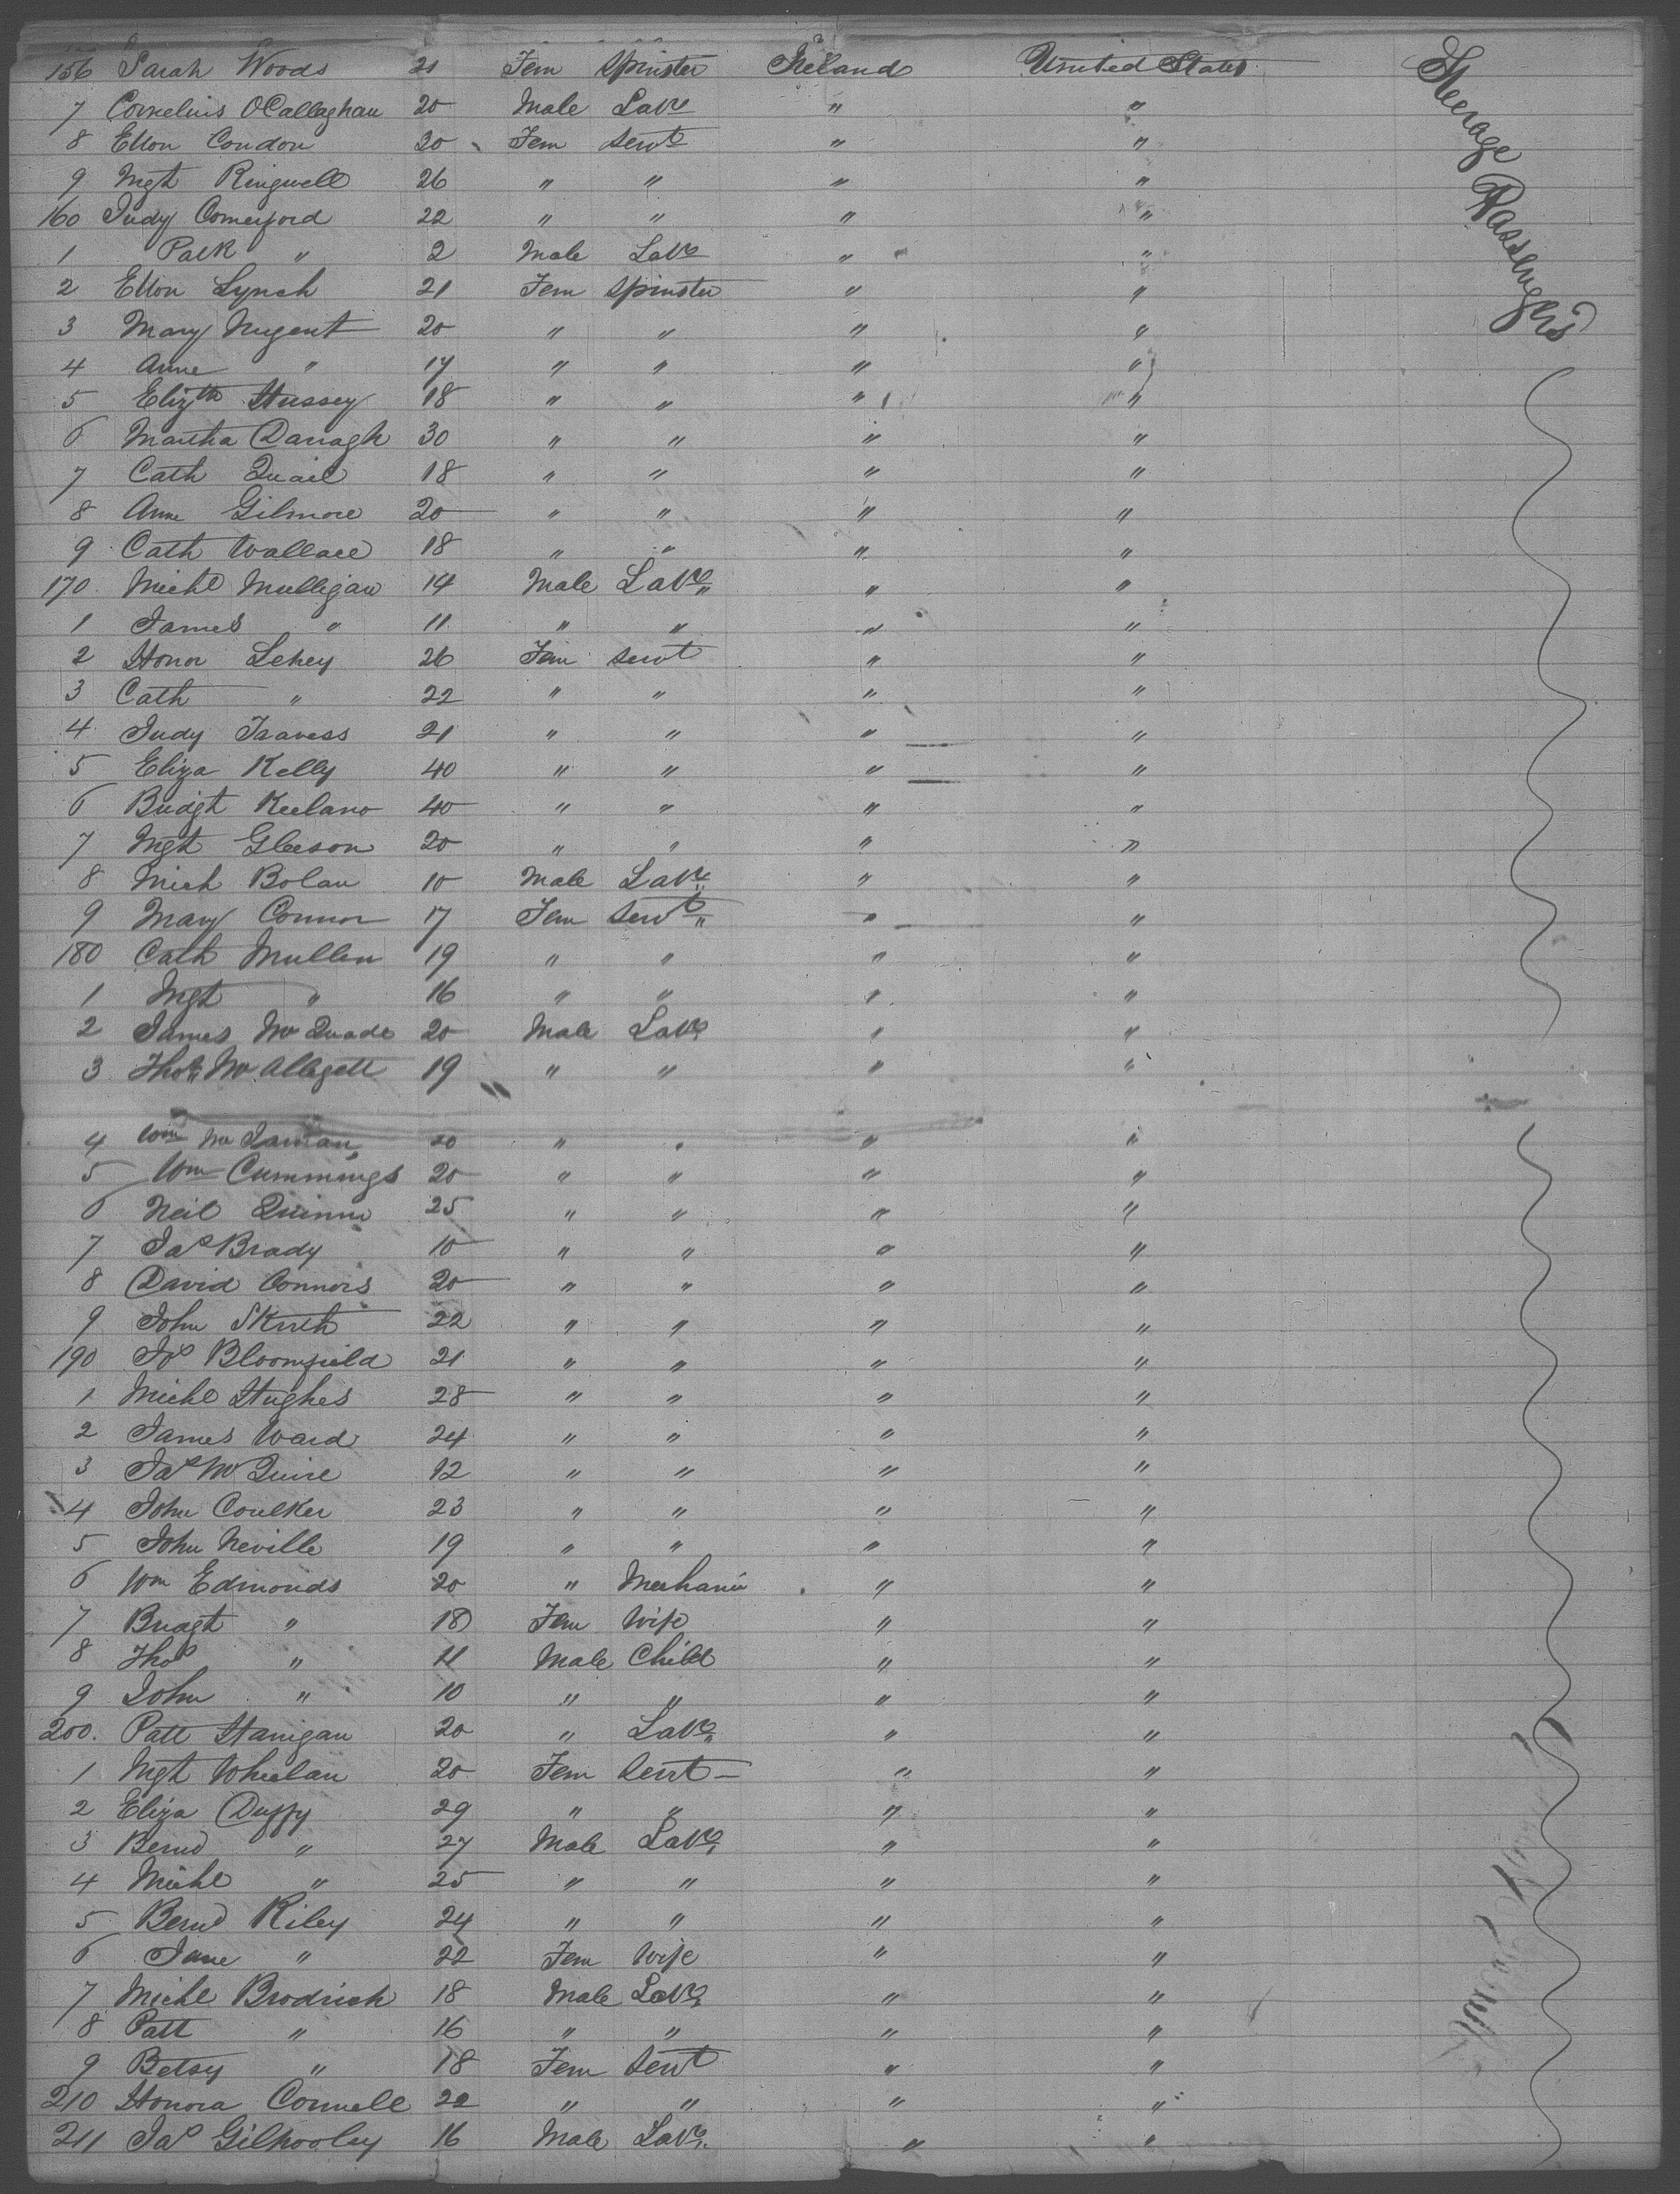 156 Sarah Woods 21 Fem Spinster Ireland United States
7 Cornelius OCallaghan 20 Male Labr " "
8 Ellen Condon 20 Fem Servt " "
9 Mgt Ringwell 26 " " " "
160 Judy Comerford 22 " " " "
1 Patk " 2 Male Labr " "
2 Ellen Lynch 21 Fem Spinster " "
3 Mary Nugent 20 " " " "
4 Anne " 17 " " " "
5 Elizth Hussey 18 " " " "
6 Martha Darragh 30 " " " "
7 Cath Quail 18 " " " "
8 Anne Gilmore 20 " " " "
9 Cath Wallace 18 " " " "
170 Michl Mulligan 14 Male Labr " "
1 James " 11 " " " "
2 Honor Lehey 26 Fem Servt " "
3 Cath " 22 " " " "
4 Judy Travess 21 " " " "
5 Eliza Kelly 40 " " " "
6 Bridgt 40 " " " "
7 Mgt Gleeson 20 " " " "
8 Mich Bolan 10 Male Labr " "
9 Mary Connor 17 Fem Servt " "
180 Cath Mullen 19 " " " "
1 Mgt " 16 " " " "
2 James McQuade 20 Male Labr " "
3 Thos 19 " " " "
4 Wm 20 " " " "
5 Wm Cummings 20 " " " "
6 Neil Quinn 25 " " " "
7 Jas Brady 10 " " " "
8 David Connors 20 " " " "
9 John 22 " " " "
190 Jos Bloomfield 21 " " " "
1 Michl Hughes 28 " " " "
2 James Ward 24 " " " "
3 Jas McQuire 12 " " " "
4 John Coulker 23 " " " "
5 John Neville 19 " " " "
6 Wm Edmonds 20 " Mechanic " "
7 Bridgt " 18 Fem Wife " "
8 Thos " 11 Male Child " "
9 John " 10 " " " "
200. Patt Hanigan 20 " Labr " "
1 Mgt Whelan 20 Fem Servt " "
2 Eliza Duffy 29 " " " "
3 Bernd " 27 Male Labr " "
4 Michl " 25 " " " "
5 Bernd Riley 24 " " " "
6 Jane " 22 Fem Wife " "
7 Michl Brodrick 18 Male Labr " "
8 Patt " 16 " " " "
9 Betsy " 18 Fem Servt " "
210 Honora Connell 22 " " " "
211 Jas Gilhooley 16 Male Labr " "
Steerage Passengers